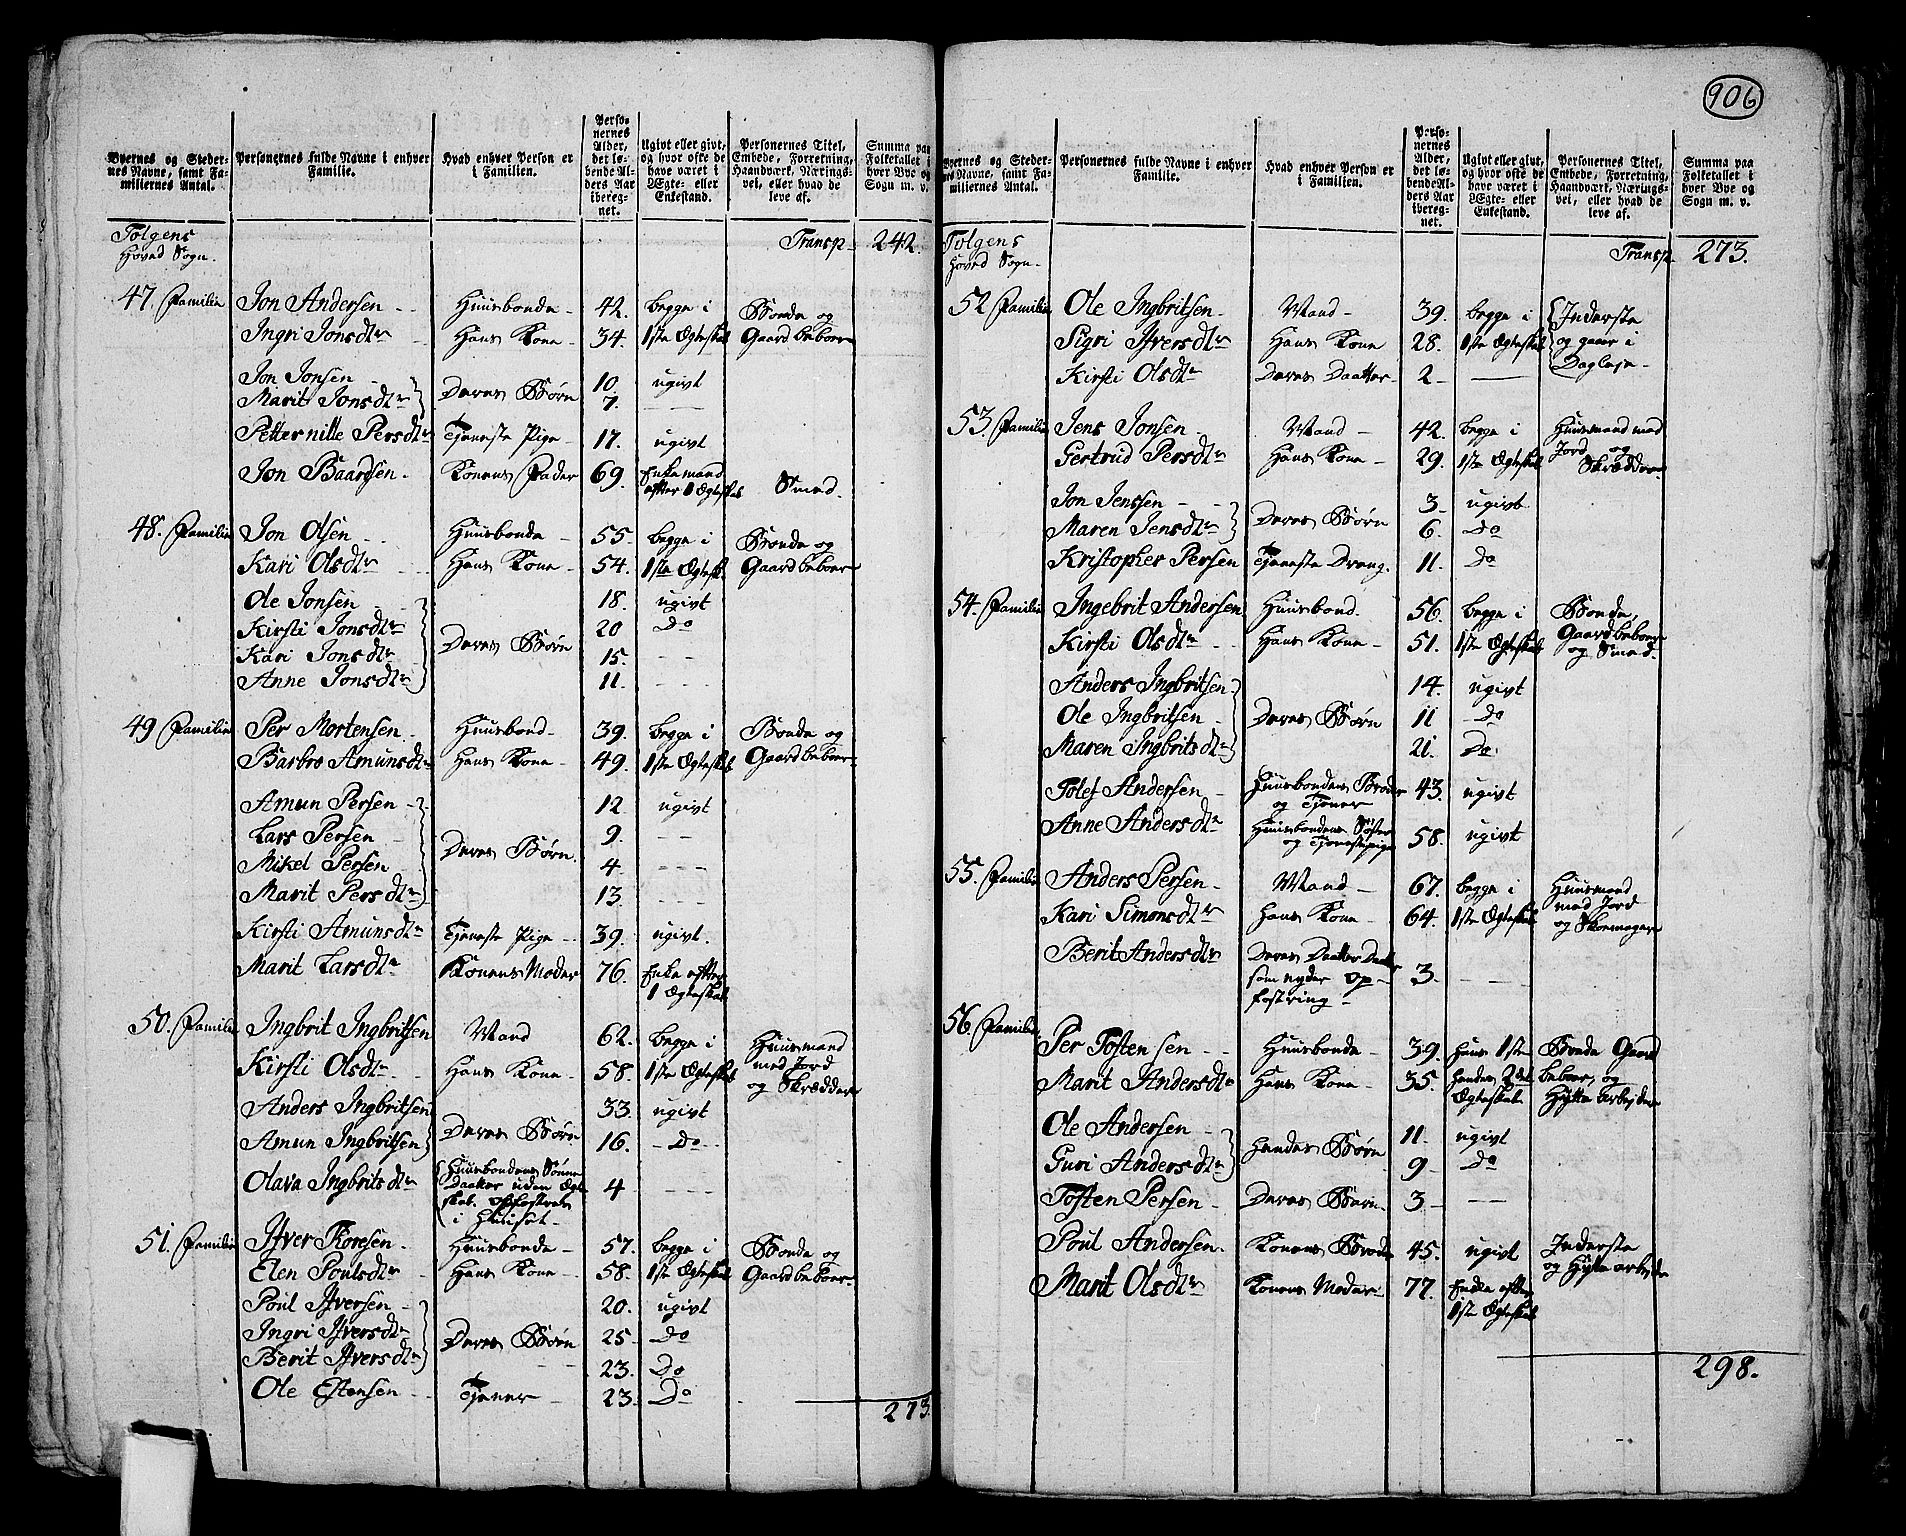 906
Byernes og Stedernes Navne, samt Familiernes Antal.
Personernes fulde Navne i enhver Familie.
Hvad enhver Person er i Familien.
Personernes Alder, det løbende Alders Aar iberegnet.
Ugivt eller givt, og hvor ofte de have været i Ægte- eller Enkestand.
Personernes Titel, Embede, Forretning, Haandværk, Næringsvei, eller hvad de leve af.
Summa paa Folketallet i hver Bye og Sogn m. v.
Tolgens Hoved Sogn.
Transp. 242.
47. Familie Jon Andersen Huusbonde 42. begge i Bonde og
Ingri Jonsdtr Hans Kone 34. 1ste Ægteskab Gaardbeboer
Jon Jonsen Deres Børn 10. ugivt
Marit Jonsdtr 7. — —
Petternille Persdtr Tjeneste Pige 17. ugivt
Jon Baardsen Konens Fader 69. Enkemand efter 1 Ægteskab Smed.
48. Familie Jon Olsen Huusbonde 55. begge i Bonde og
Kari Olsdtr Hans Kone 54. 1ste Ægtesk. Gaardbeboer
Ole Jonsen 18. ugivt
Kirsti Jonsdtr 20 Do
Kari Jonsdtr Deres Børn 15. — —
Anne Jonsdtr 11. — — —
49 Familie Per Mortensen Huusbond 39. begge i Bonde og
Barbro Amunsdtr Hans Kone 49. 1ste Ægteskab Gaardbeboer
Amun Persen 12 ugivt
Lars Persen 9. — —
Mikel Persen Deres Børn. 4. — — —
Marit Persdtr 13 — — —
Kirsti Amunsdtr Tjeneste Pige 39. ugivt.
Marit Larsdtr Konens Moder 76. Enke efter 1 Ægteskab
50. Familie Ingbrit Ingbritsen Mand 62. begge i Huusmand
Kirsti Olsdtr Hans Kone 58. 1ste Ægteskab med Jord og Skrædder
Anders Ingbritsen Deres Børn 33. ugivt
Amun Ingbritsen 16. Do
Olava Ingbritsdtr Huusbondens Sønne Daatter uden Ægteskab. opfostres i Huuset 4 — — —
51. Familie Ifver Toresen Huusbonde 57. begge i Bonde og
Elen Poulsdtr Hans Kone 58. 1ste Ægteskab Gaardbeboer
Poul Ifversen 20. ugivt
Ingri Ifversdtr Deres Børn 25 Do
Berit Ifversdtr 23. Do
Ole Estensen Tjener 23. Do
273.
Byernes og Stedernes Navne, samt Familiernes Antal.
Personernes fulde Navne i enhver Familie.
Hvad enhver Person er i Familien.
Personernes Alder, det løbende Alders Aar iberegnet.
Ugivt eller givt, og hvor ofte de have været i Ægte- eller Enkestand.
Personernes Titel, Embede, Forretning, Haandværk, Næringsvei, eller hvad de leve af.
Summa paa Folketallet i hver Bye og Sogn m. v.
Tolgens Hoved Sogn
Transp. 273.
52 Familie Ole Ingbritsen Mand 39. begge i Inderste
Sigri Ifversdtr Hans Kone 28. 1ste Ægteskab og gaar i
Kirsti Olsdtr Deres Daatter 2 — Dagleje
53. Familie Jens Jonsen Mand 42. begge i Huusmand med
Gertrud Persdtr Hans Kone 29. 1ste Ægteskab Jord og Skrædder
Jon Jenssen Deres Børn 3 ugivt
Maren Jensdtr 6. Do
Kristopher Persen Tjeneste Dreng. 11. Do
54. Familie Ingebrit Andersen Huusbond. 56. begge i Bonde,
Kirsti Olsdtr Hans Kone 51. 1ste Ægteskab Gaardbeboer og Smed.
Anders Ingbritsen 14. ugivt
Ole Ingbritsen Deres Børn 11 Do
Maren Ingbritsdtr 21. Do.
Tolef Andersen Huusbondens Broder og Tjener 43. ugivt
Anne Andersdtr Huusbondens Søster og Tjenestepige 58. ugivt
55. Familie Anders Persen Mand 67. begge i Huusmand
Kari Simonsdtr Hans Kone 64. 1ste Ægteskab med Jord og Skoemager
Berit Andersdtr Deres Daatter Daatter som nyder opfostring 3. — —
56. Familie
Per Tostensen Huusbonde 39. hans 1ste Bonde Gaard
Marit Andersdtr Hans Kone 35. hendes 2det Ægteskab beboer, og Hytte arbejder
Ole Andersen Hendes Børn 11 ugivt
Guri Andersdtr 9 Do
Tosten Persen Deres Barn 3 — —
Poul Andersen. Konens Broder 45. ugivt Inderste og Hytte arbejder
Marit Olsdtr Konens Moder 77. Enke efter 1ste Ægteskab
298.